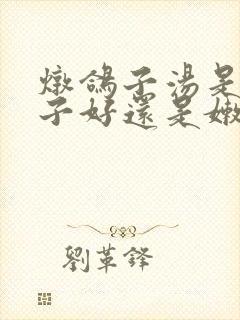 燉鴿子湯是
子好還是嫩
劉革鋒